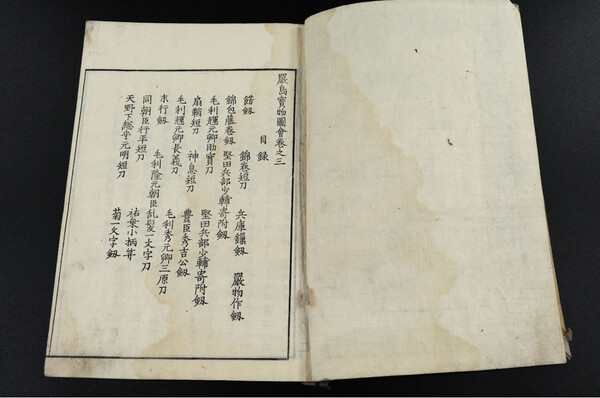 嚴島寳物圖會卷之三
目録
餝劔 錦卷短刀 兵庫鏁劔 嚴物作劔
錦包藤卷劔 堅田兵部少輔寄附劔
毛利輝元卿助實刀 堅田兵部少輔寄附劔
扇鞘短刀 神息短刀 豊臣秀吉公劔
毛利輝元卿長義刀 毛利秀元卿三原刀
末行劔 毛利隆元朝臣乱髪一文字刀
同朝臣行平短刀 祐乗小柄等
天野下総守元明短刀 菊一文字劔